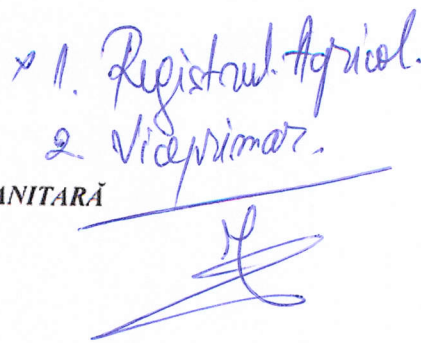 × 1. Registrul. Agricol.
2. Viceprimar.
ANITARĂ